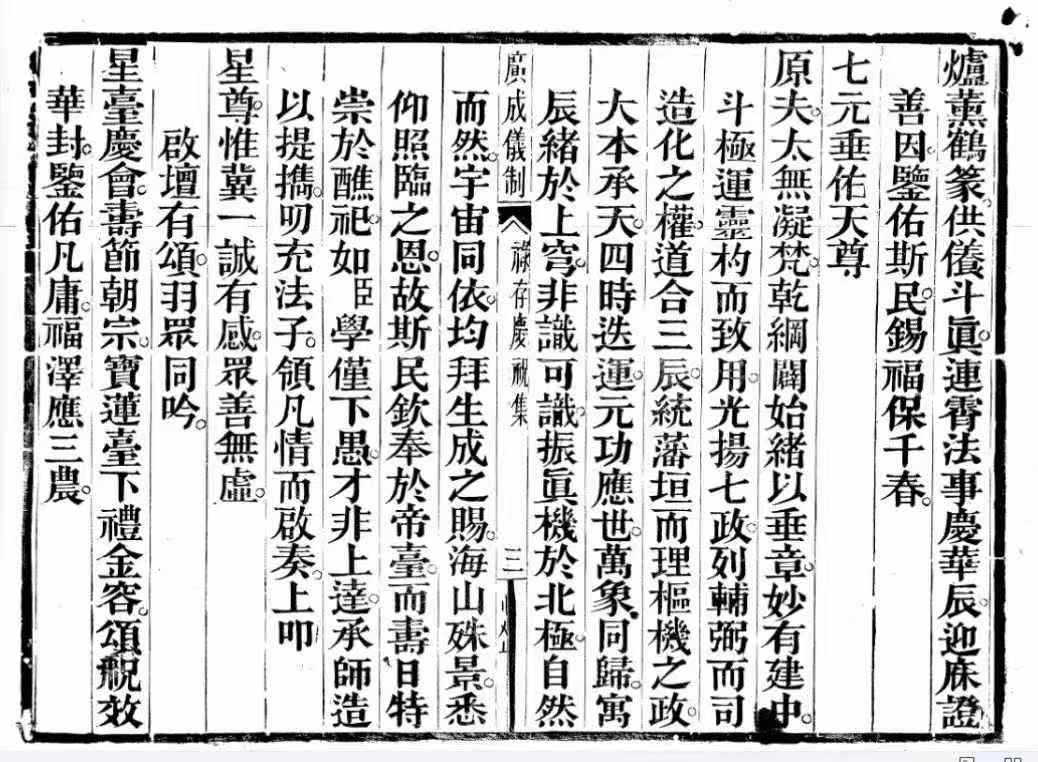 爐薰鶴篆。供儀斗真。連霄法事慶華辰。迎庥證
善因。鑒佑斯民。錫福保千春。
七元垂佑天尊
原夫。太無凝梵。乾綱闢始緒以垂章。妙有建中。
斗極運靈杓而致用。光揚七政。列輔弼而司
造化之權。道合三辰。統藩垣而理樞機之政。
大本承天。四時迭運。元功應世。萬象同歸。寓
辰緒於上穹。非識可識。振眞機於北極。自然
廣成儀制 祿存慶祝集 三
而然。宇宙同依。均拜生成之賜。海山殊景。悉
仰照臨之恩。故斯民欽奉於帝臺。而壽日特
崇於醮祀。如臣 學僅下愚。才非上達。承師造
以提攜。叨充法子。領凡情而啟奏。上叩
星尊。惟冀一誠有感。眾善無虛。
啟壇有頌。羽眾同吟。
星臺慶會。壽節朝宗。寶蓮臺下禮金容。頌祝效
華封。鑒佑凡庸。福澤應三農。